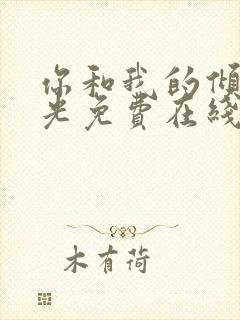 你和我的倾
光免费在线
木有荷